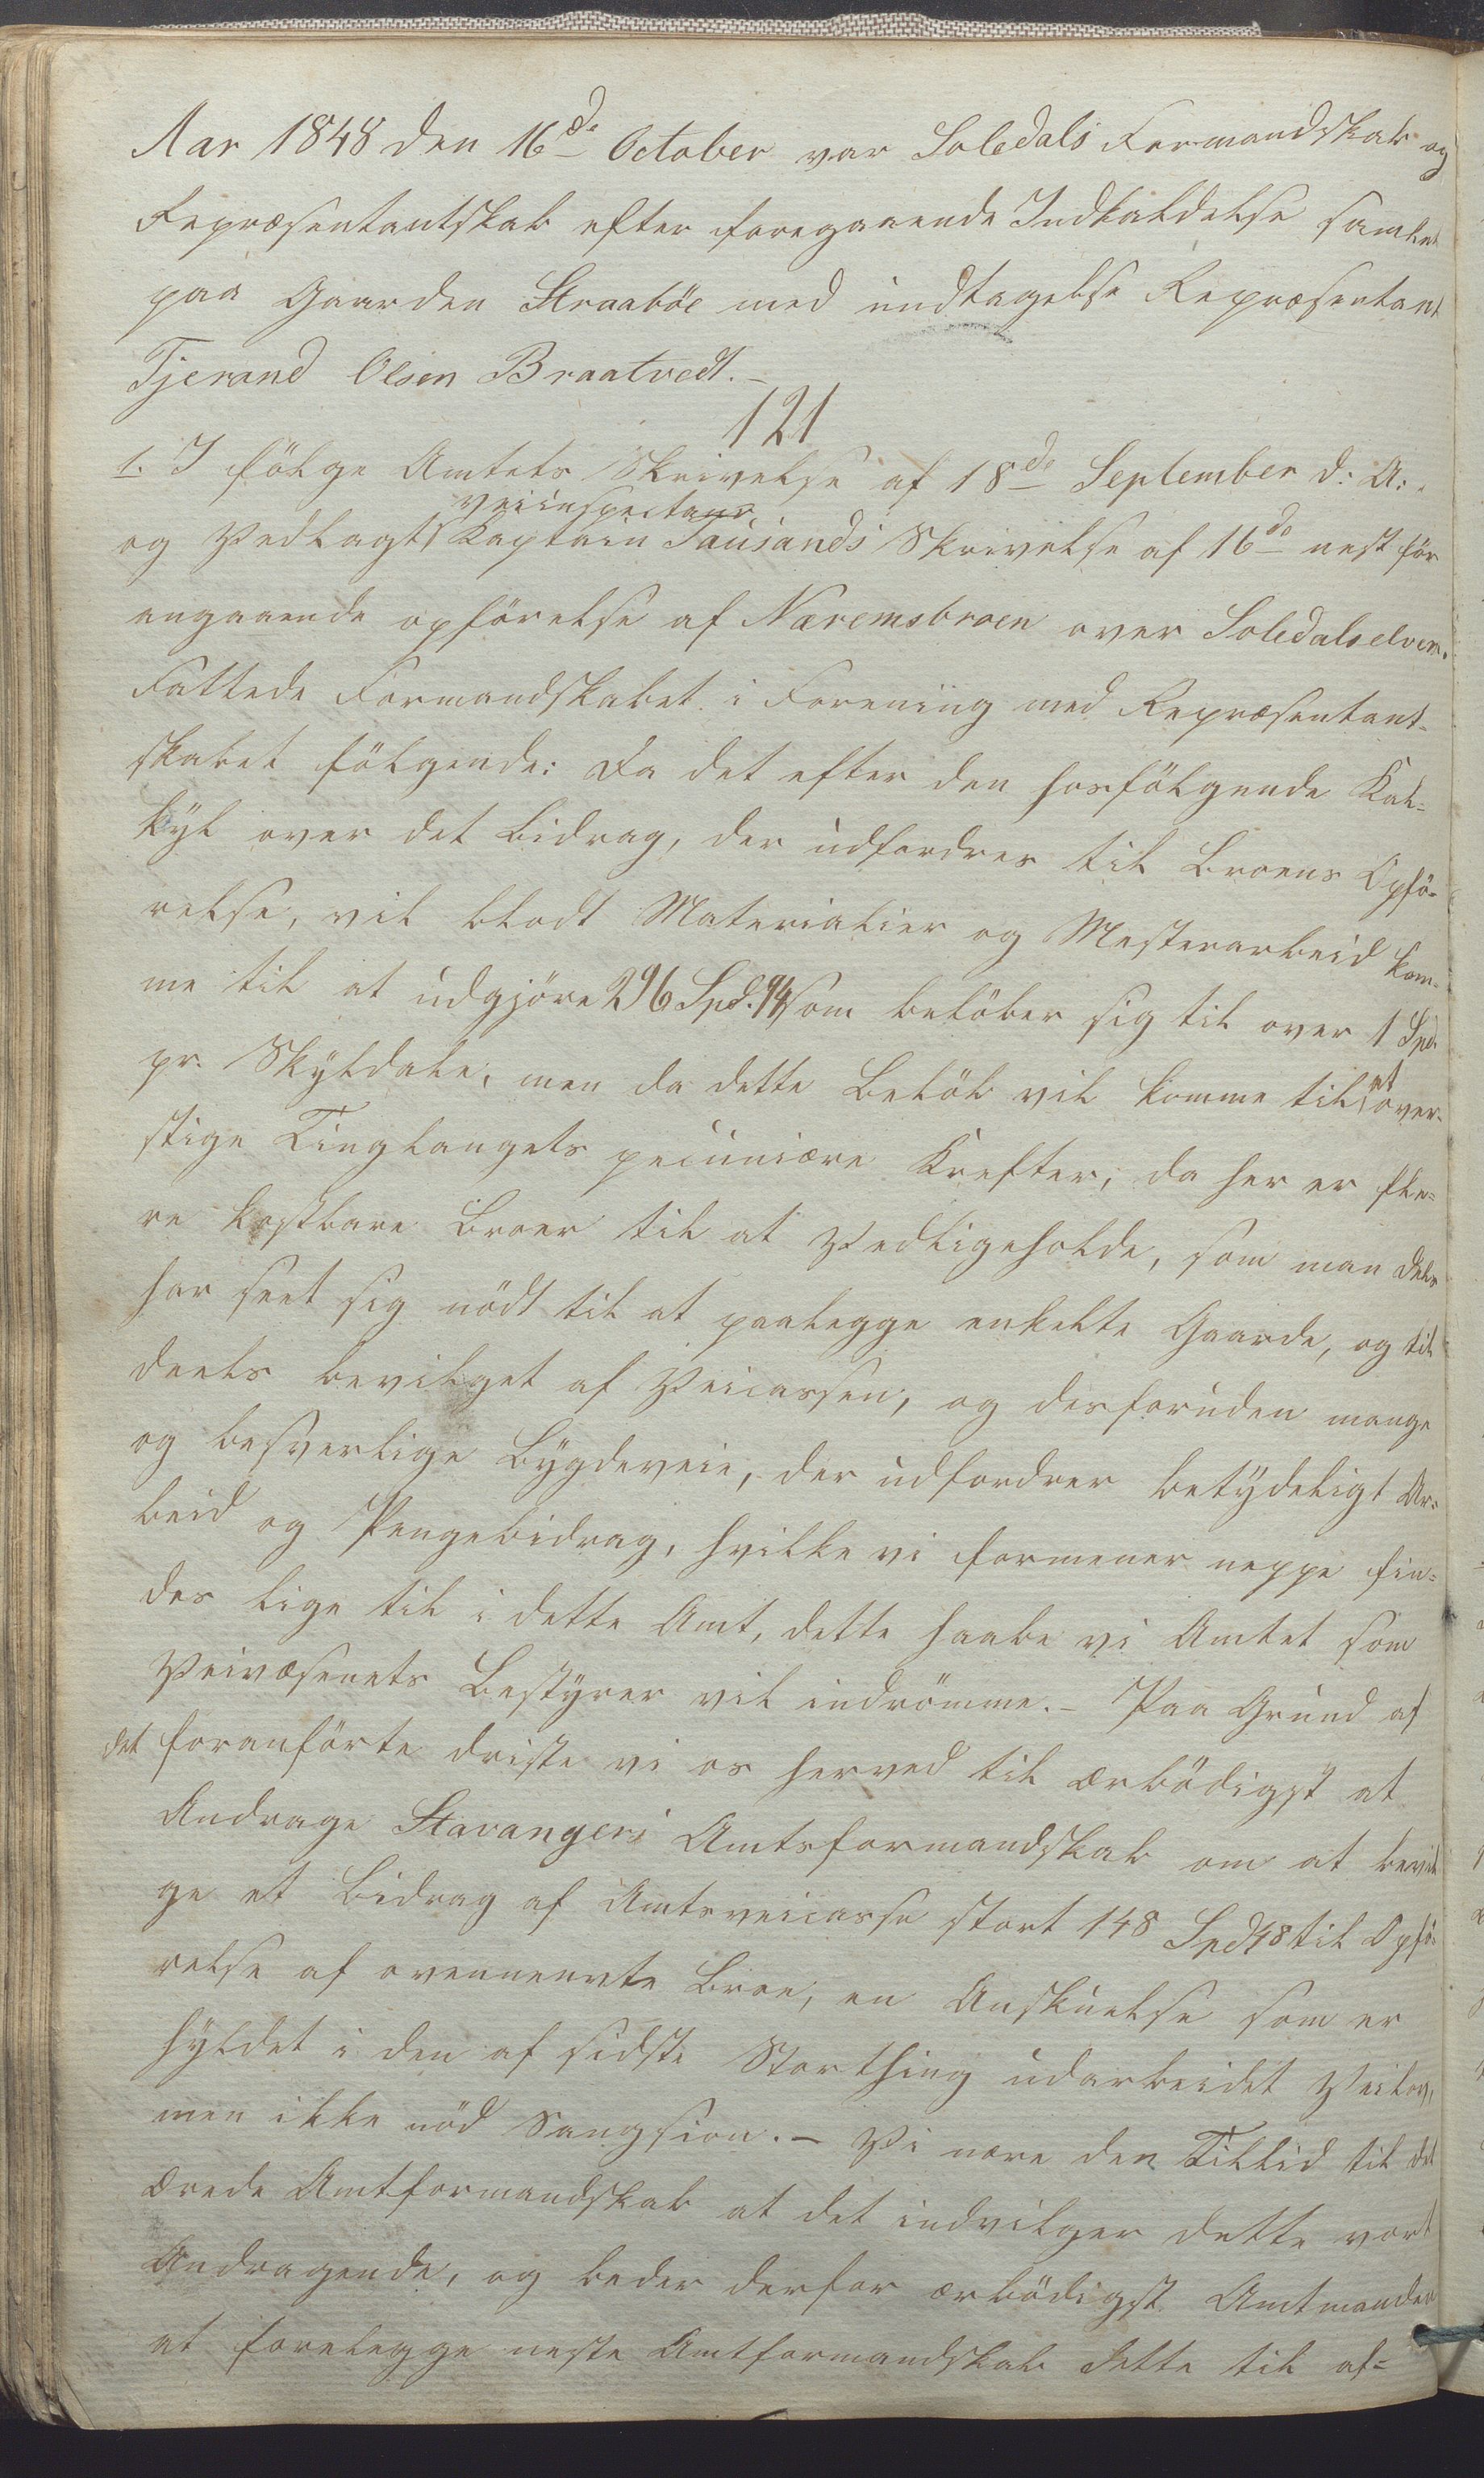 Aar 1848 den 16de October var Soledals Formandskab og
Repræsentantskab efter foregaaende Indkaldelse samlet
paa Gaarden Straabøe med undtagelse Repræsentant
Tjerand Olsen Braatvedt.-
121
1. I følge Amtets Skrivelse af 18de September d: A:
veiinspecteur
og Vedlagt Kaptain Tausands Skrivelse af 16de nest før
angaaende opførelse af Næremsbroen over Soledalselven.
Fattede Formandskabet i Foreniing med Repræsentant-
skabet følgende: Da det efter den hosfølgende Kal-
kyl over det bidrag, der udfordres til Broens Opfø-
relse, vil blodt Materialier og Mesterarbeid kom-
me til at udgjøre 296 Spd. 94 som beløber sig til over 1 Spd
pr. Skyldale, men da dette Beløb vil komme til at over-
stige Tinglaugets pecuniære Krefter, da her er fle-
re kostbare Broer til at Vedligeholde, som man dels
har seet sig nødt til at paalegge enkelte Gaarde, og til
deels bevilget af Veicassen, og desforuden mange
og besverlige Bygdeveie, der udfordrer betydeligt Ar-
beid og Pengebidrag, hvilke vi formener neppe fin-
des lige til i dette Amt, dette haabe vi Amtet som
Veivæsenets Bestyrer vil indrømme.- Paa Grund af
det foranførte driste vi os herved til ærbødigst at
Andrage Stavangers Amtsformandskab om at bevil
ge et bidrag af Amtsveicasse stort 148 Spd 48 til Opfø-
relse af ovennevnte Broe, en Anskuelse som er
hyldet i den af sidste Storthing udarbeidet Veilov,
men ikke nød Sangsion.- Vi nære den Tillid til det
ærede Amtformandskab at det indvilger dette vort
Andragende, og beder derfor ærbødigst Amtmanden
at forelegge neste Amtformandskab dette til af-